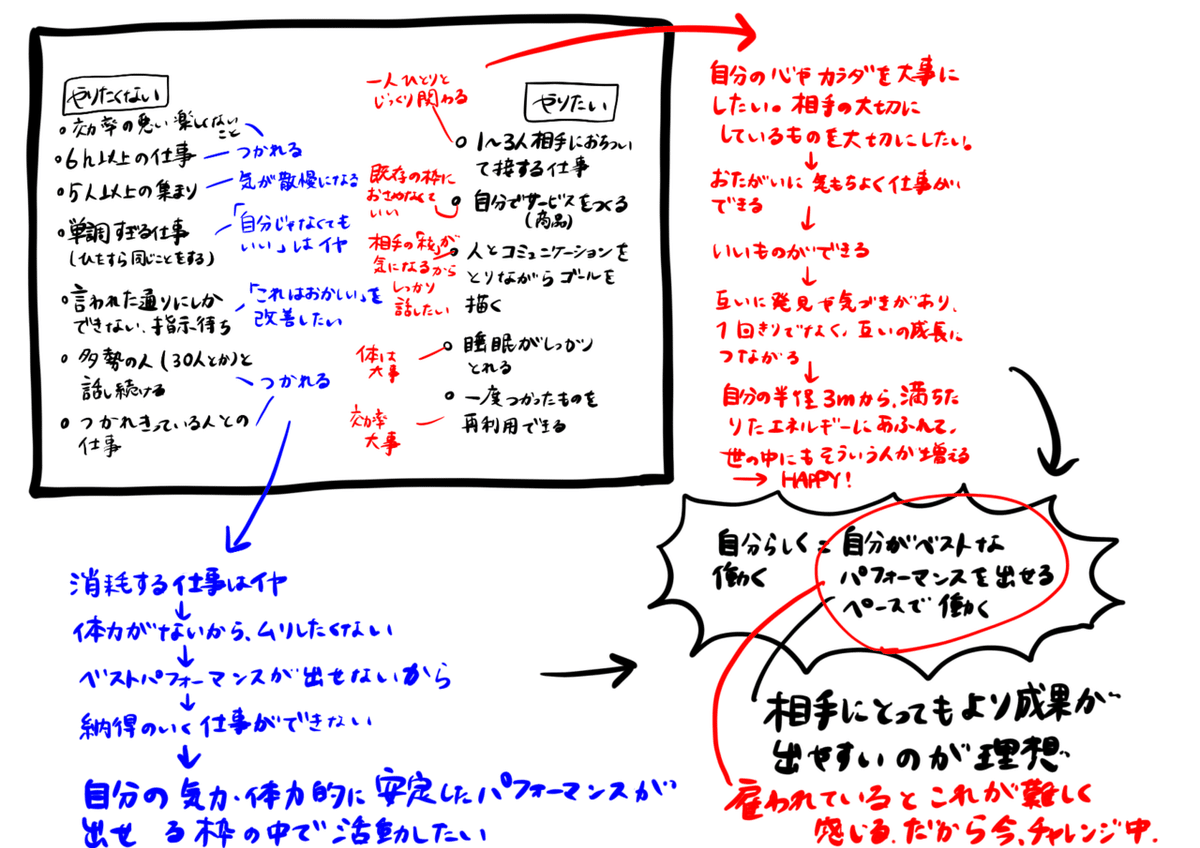 やりたくない
・効率の悪い楽しくない
こと
・6h以上の仕事
・5人以上の集まり
・単調すぎる仕事
(ひたすら同じことをする)
・言われた通りにしか
できない、指示待ち
・多勢の人(30人とか)と
話し続ける
・つかれきっている人との
仕事
つかれる
気が散慢になる
「自分じゃなくても
いい」はイヤ
「これはおかしい」を
改善したい
つかれる
一人ひとりと
じっくり関わる
既存の枠に
おさめなくて
いい
相手の「核」が
気になるから
しっかり
話したい
体は
大事
効率
大事
やりたい
・1〜3人相手におちつい
て接する仕事
・自分でサービスをつくる
(商品)
・人とコミュニケーションを
とりながらゴールを
描く
・睡眠がしっかり
とれる
・一度つかったものを
再利用できる
自分の心やカラダを大事に
したい。相手の大切に
しているものを大切にしたい。
↓
おたがいに気もちよく仕事が
できる
↓
いいものができる
↓
互いに発見や気づきがあり、
1回きりでなく、互いの成長に
つながる
↓
自分の半径3mから、満ちた
りたエネルギーにあふれて、
世の中にもそういう人が増える
→ HAPPY!
消耗する仕事はイヤ
↓
体力がないから、ムリしたくない
↓
ベストパフォーマンスが出せないから
↓
納得のいく仕事ができない
↓
自分の気力・体力的に安定したパフォーマンスが
出せる枠の中で活動したい
自分らしく = 自分がベストな
働く パフォーマンスを出せる
ペースで働く
相手にとってもより成果が
出やすいのが理想
雇われているとこれが難しく
感じる。だから今、チャレンジ中.